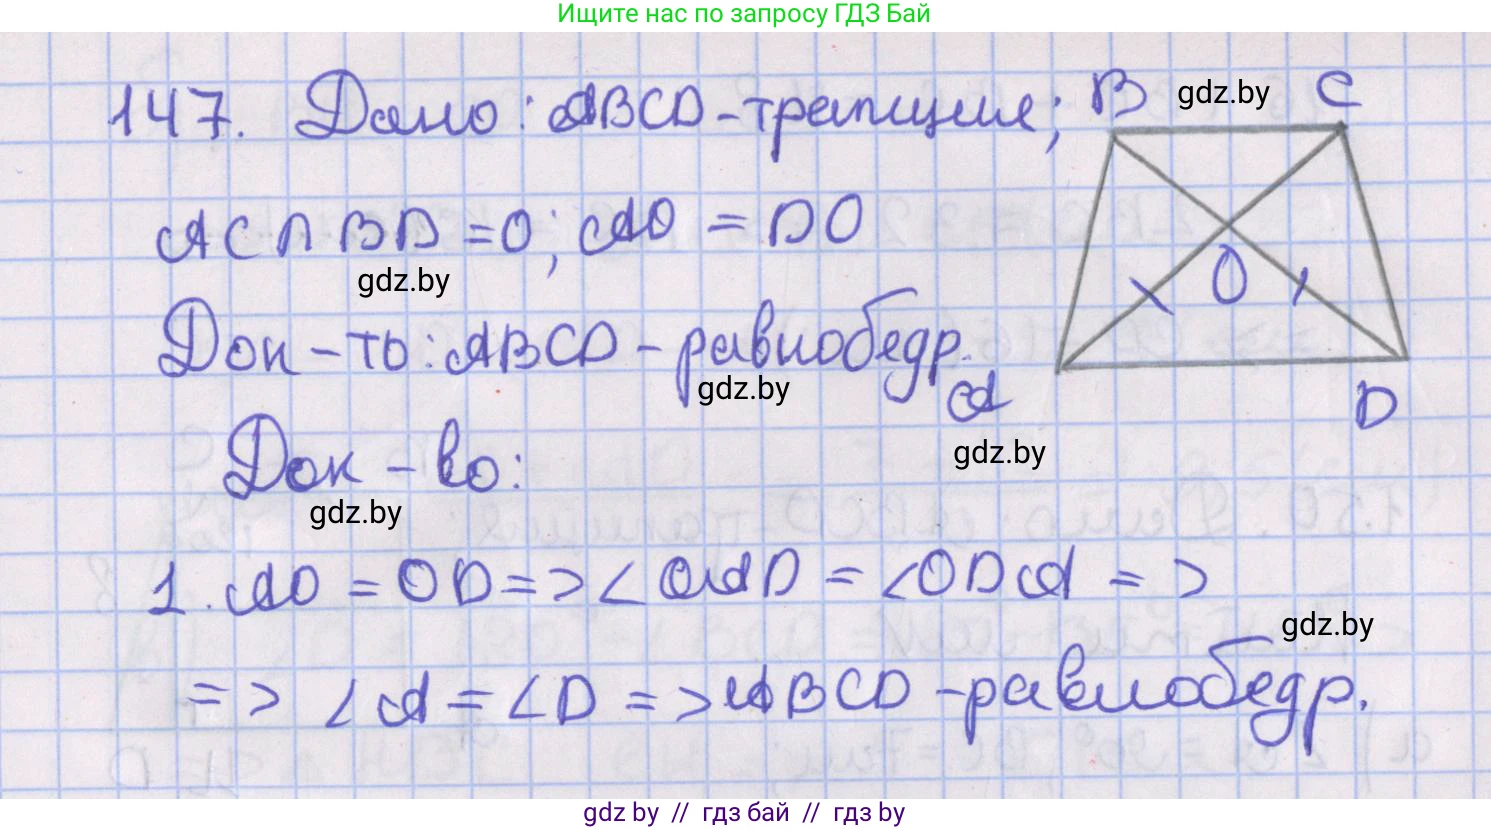 Ищите нас по запросу ГДЗ Бай
147. Дано: ABCD-трапция; B gdz.by C
AC ∩ BD = O; AO = DO
gdz.by
O
Док-ть: ABCD - равнобедр.
gdz.by
A D
gdz.by
Док-во:
gdz.by
1. AO = OD => ∠OAD = ∠ODA =>
gdz.by
=> ∠A = ∠D => ABCD -равнобедр.
gdz by // гдз бай // гдз by